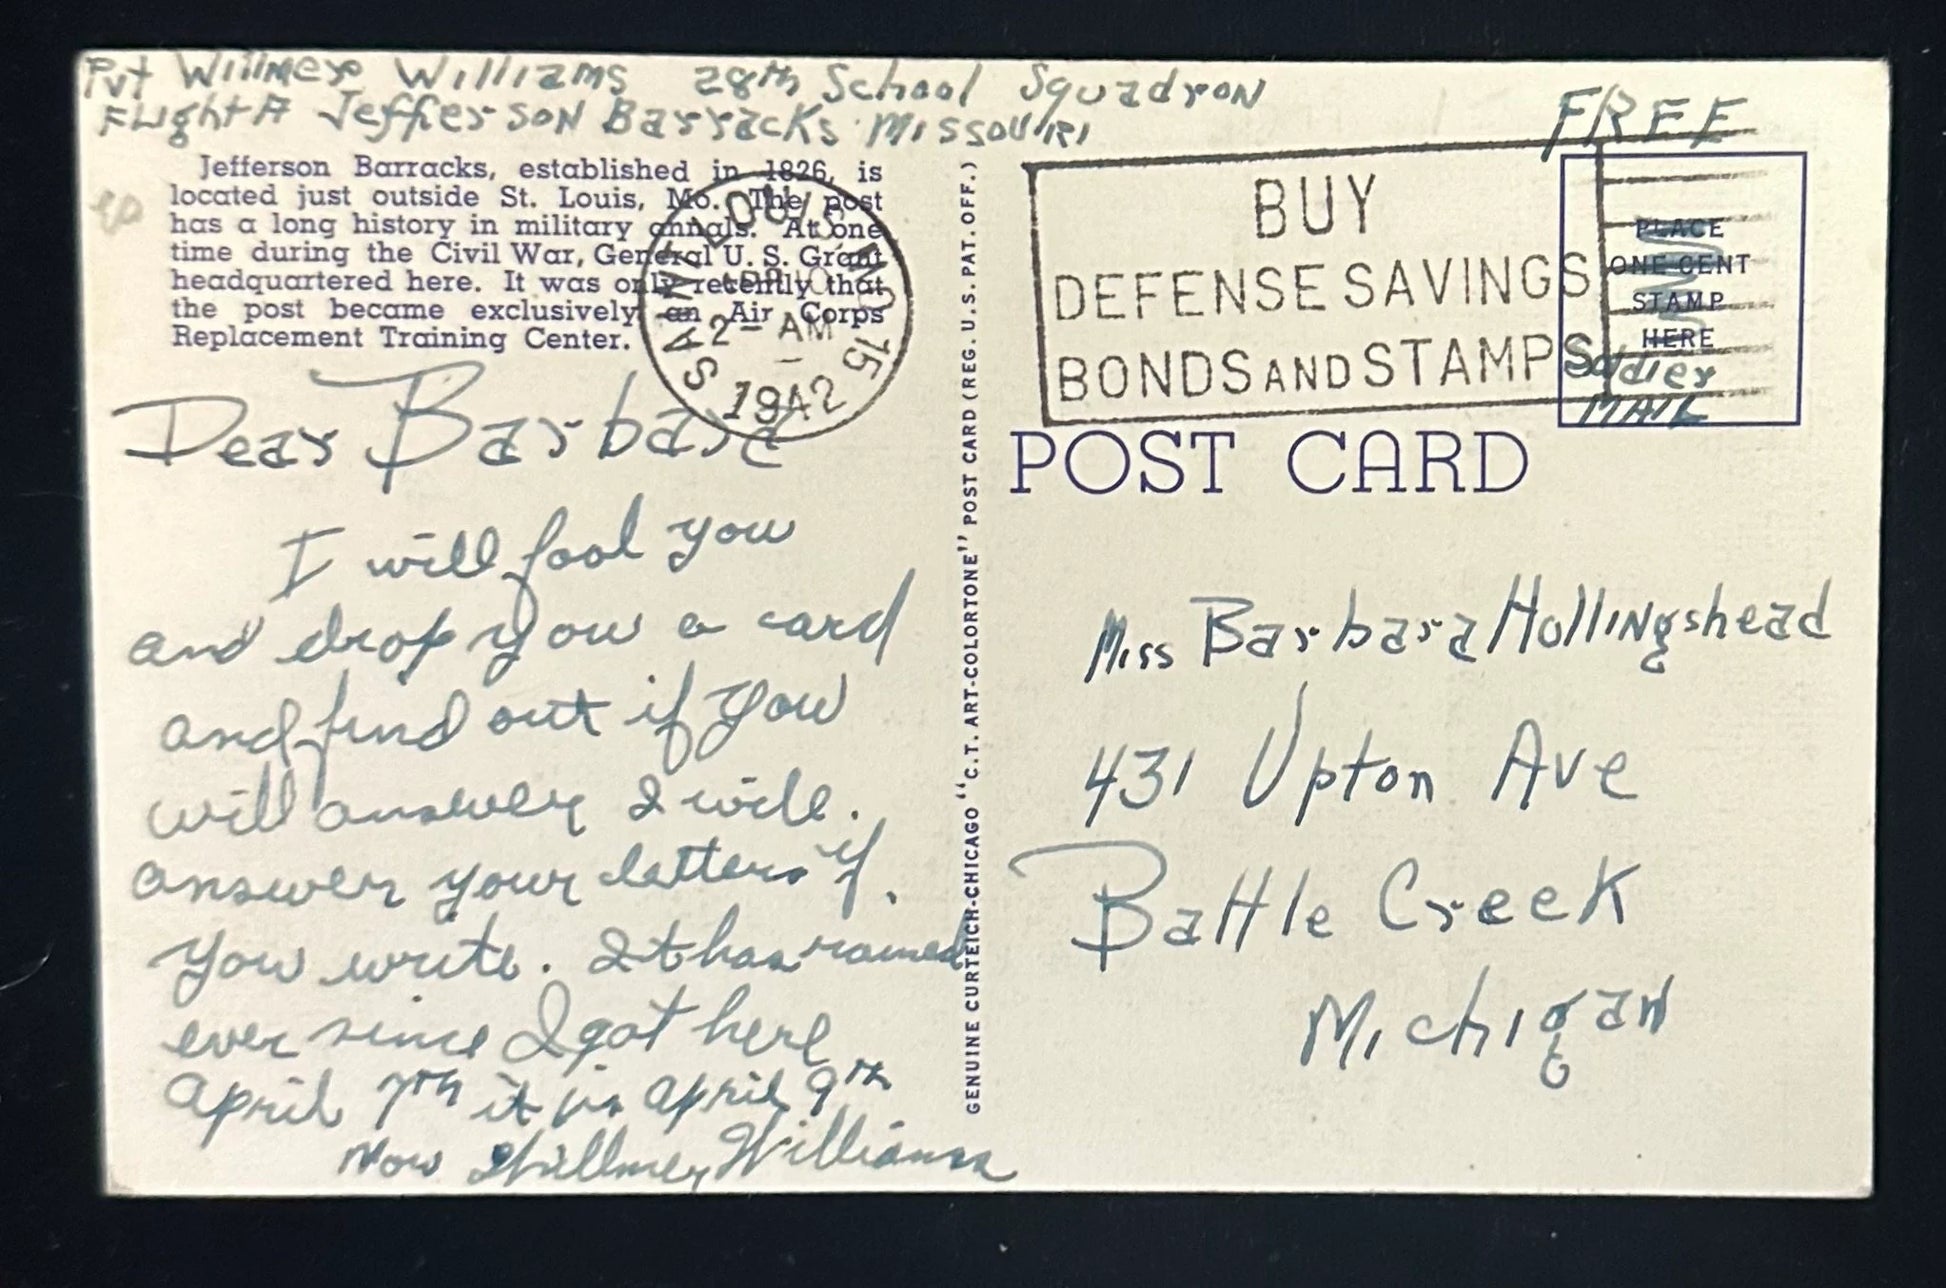 Pvt Willmer Williams 28th School Squadron
Flight A Jefferson Barracks Missouri
FREE
Jefferson Barracks, established in 1826, is
located just outside St. Louis, Mo. The post
has a long history in military annals. At one
time during the Civil War, General U. S. Grant
headquartered here. It was only recently that
the post became exclusively an Air Corps
Replacement Training Center.
SAINT LOUIS, MO. 15
APR 10
2 - AM
1942
BUY
DEFENSE SAVINGS
BONDS AND STAMPS
PLACE
ONE CENT
STAMP
HERE
Soldier
MAIL
POST CARD
GENUINE CURTEICH-CHICAGO "C.T. ART-COLORTONE" POST CARD (REG. U.S. PAT. OFF.)
Dear Barbara
I will fool you
and drop you a card
and find out if you
will answer I will.
answer your letters if.
you write. It has rained
ever since I got here
April 7th it is April 9th
Now Willmer Williams
Miss Barbara Hollingshead
431 Upton Ave
Battle Creek
Michigan